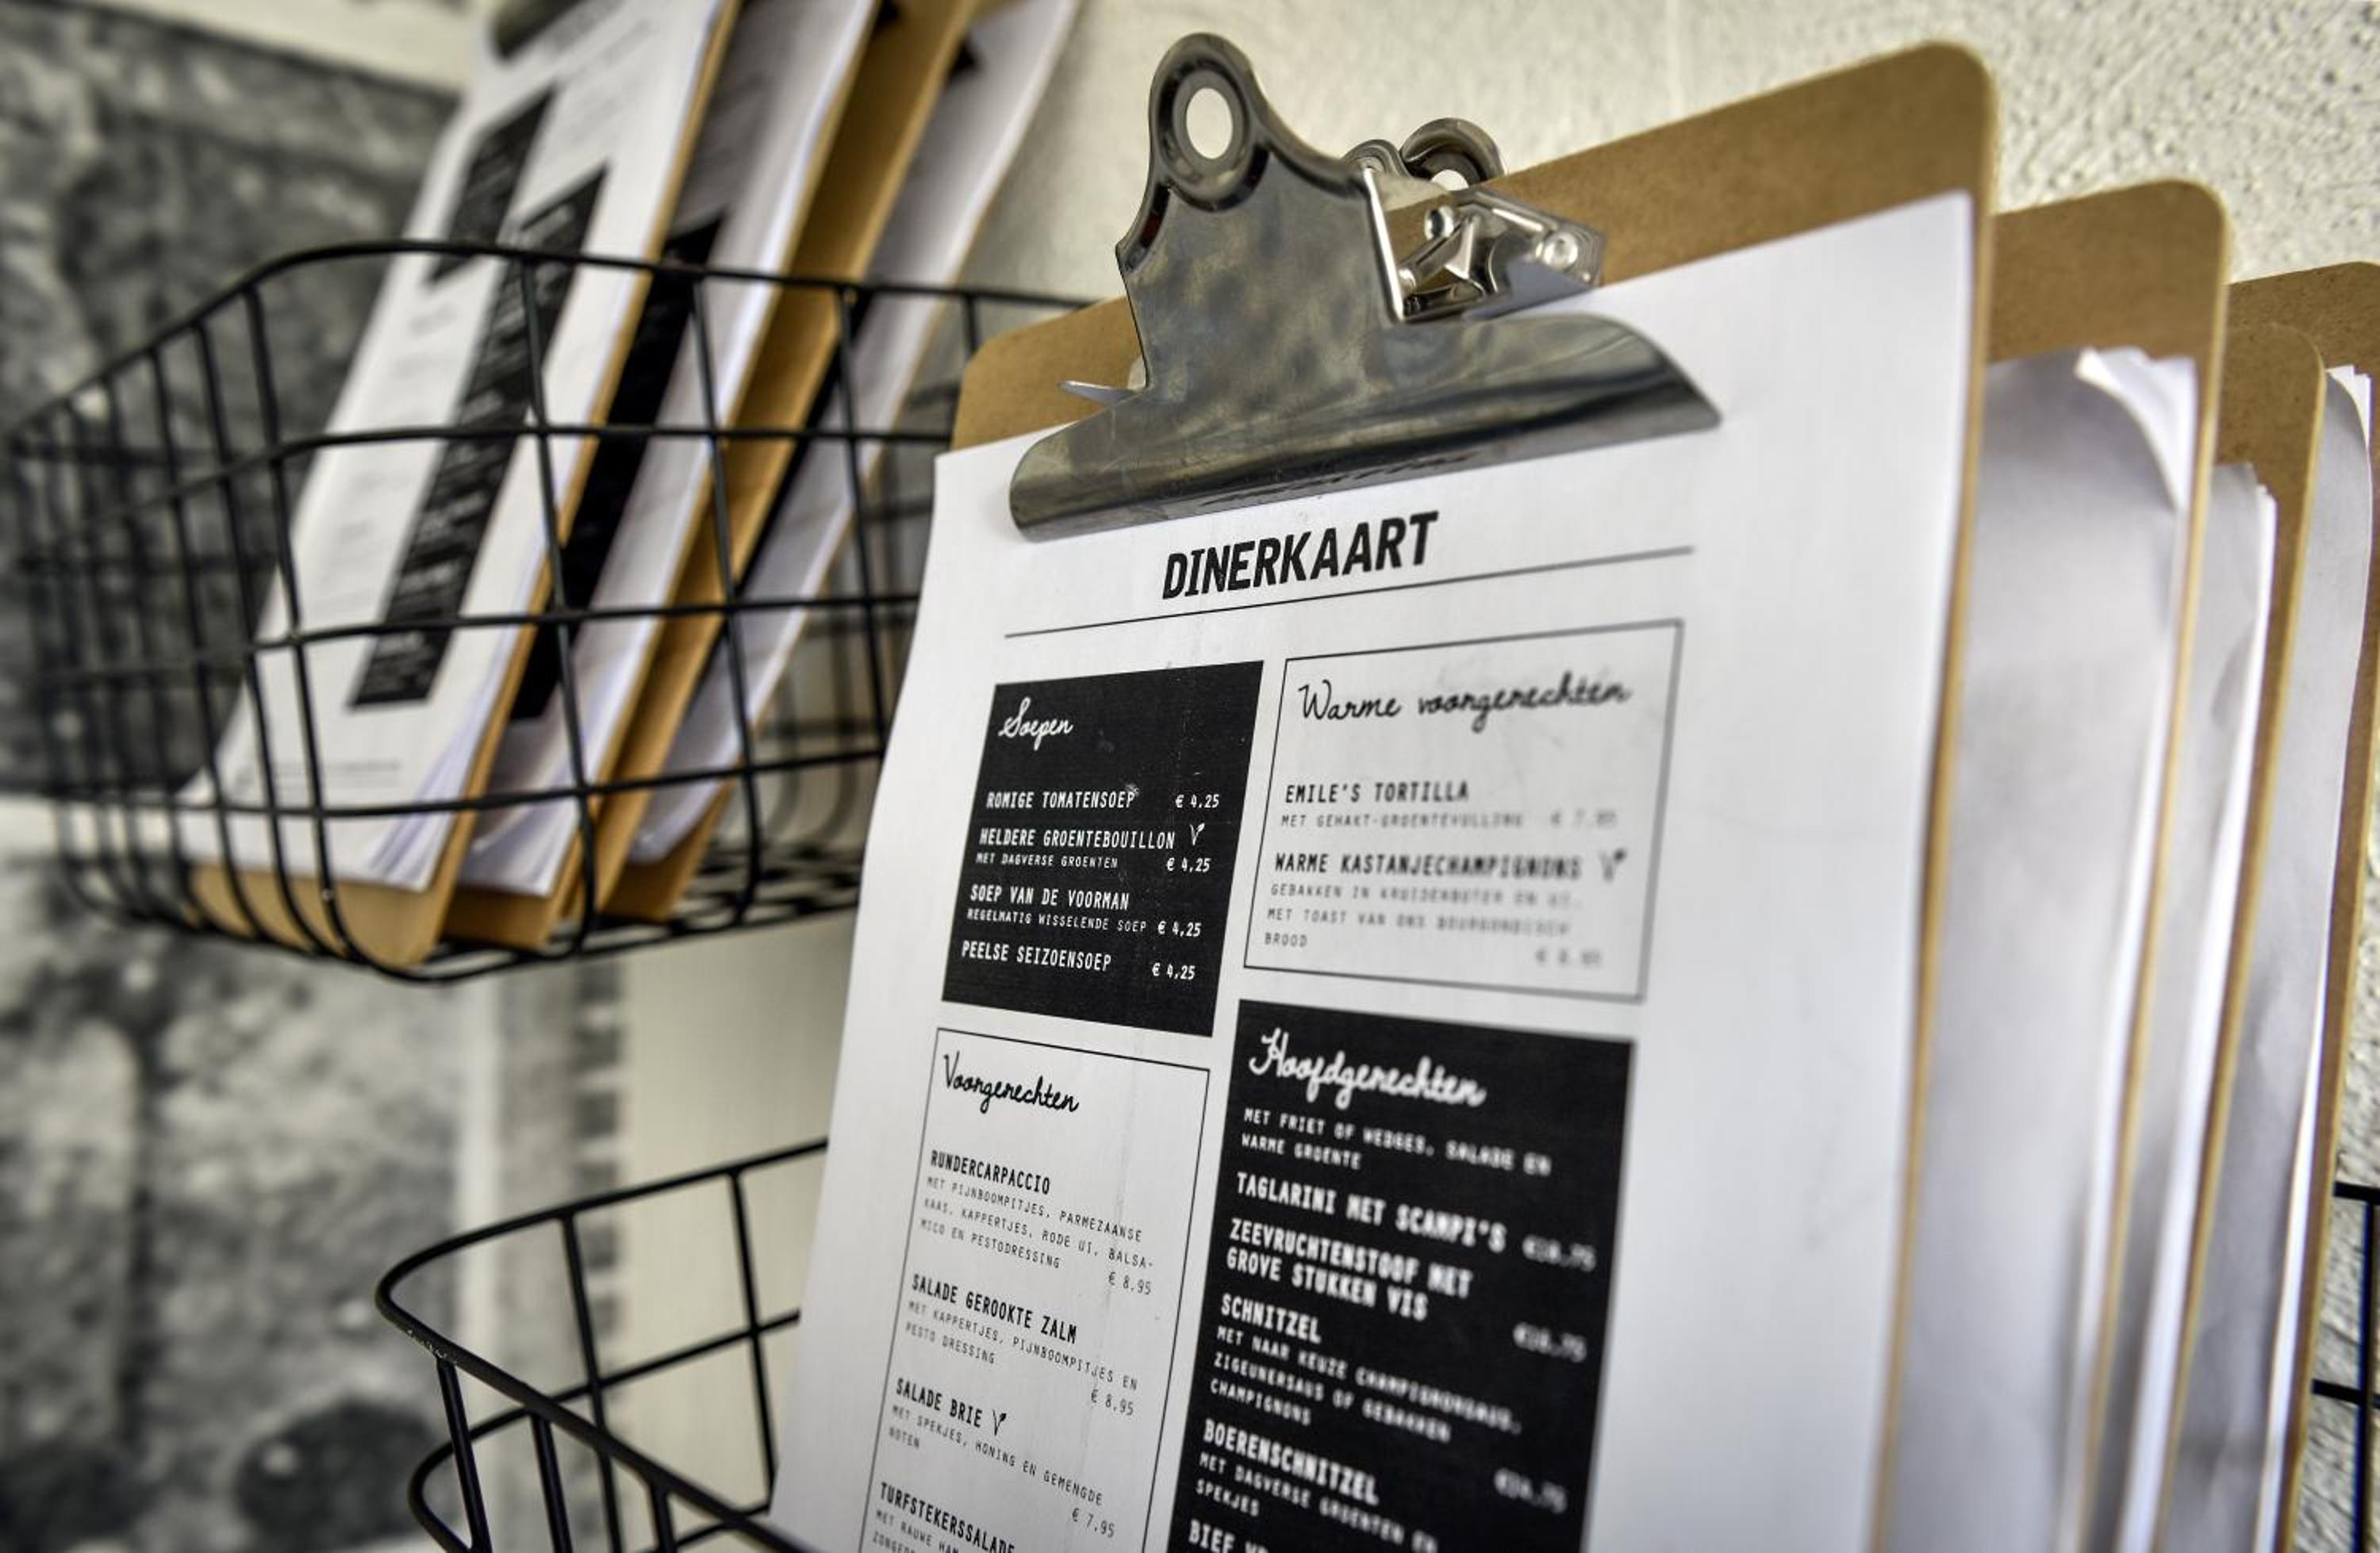 DINERKAART
Soepen
ROMIGE TOMATENSOEP € 4,25
HELDERE GROENTEBOUILLON
MET DAGVERSE GROENTEN € 4,25
SOEP VAN DE VOORMAN
REGELMATIG WISSELENDE SOEP € 4,25
PEELSE SEIZOENSOEP € 4,25
Warme voorgerechten
EMILE'S TORTILLA
MET GEHAKT-GROENTEVULLING
WARME KASTANJECHAMPIGNONS
GEBAKKEN IN KRUIDENBOTER EN UI,
MET TOAST VAN ONS BOURGONDISCH
BROOD
Voorgerechten
RUNDERCARPACCIO
MET PIJNBOOMPITJES, PARMEZAANSE
KAAS, KAPPERTJES, RODE UI, BALSA-
MICO EN PESTODRESSING
€ 8.95
SALADE GEROOKTE ZALM
MET KAPPERTJES, PIJNBOOMPITJES EN
PESTO DRESSING
€ 8.95
SALADE BRIE
MET SPEKJES, HONING EN GEMENGDE
NOTEN
€ 7.95
TURFSTEKERSSALADE
MET RAUWE
Hoofdgerechten
MET FRIET OF WEDGES, SALADE EN
WARME GROENTE
TAGLARINI MET SCAMPI'S
ZEEVRUCHTENSTOOF MET
GROVE STUKKEN VIS
SCHNITZEL
MET NAAR KEUZE CHAMPIGNONSAUS,
ZIGEUNERSAUS OF GEBAKKEN
CHAMPIGNONS
BOERENSCHNITZEL
MET DAGVERSE GROENTEN EN
SPEKJES
BIEF